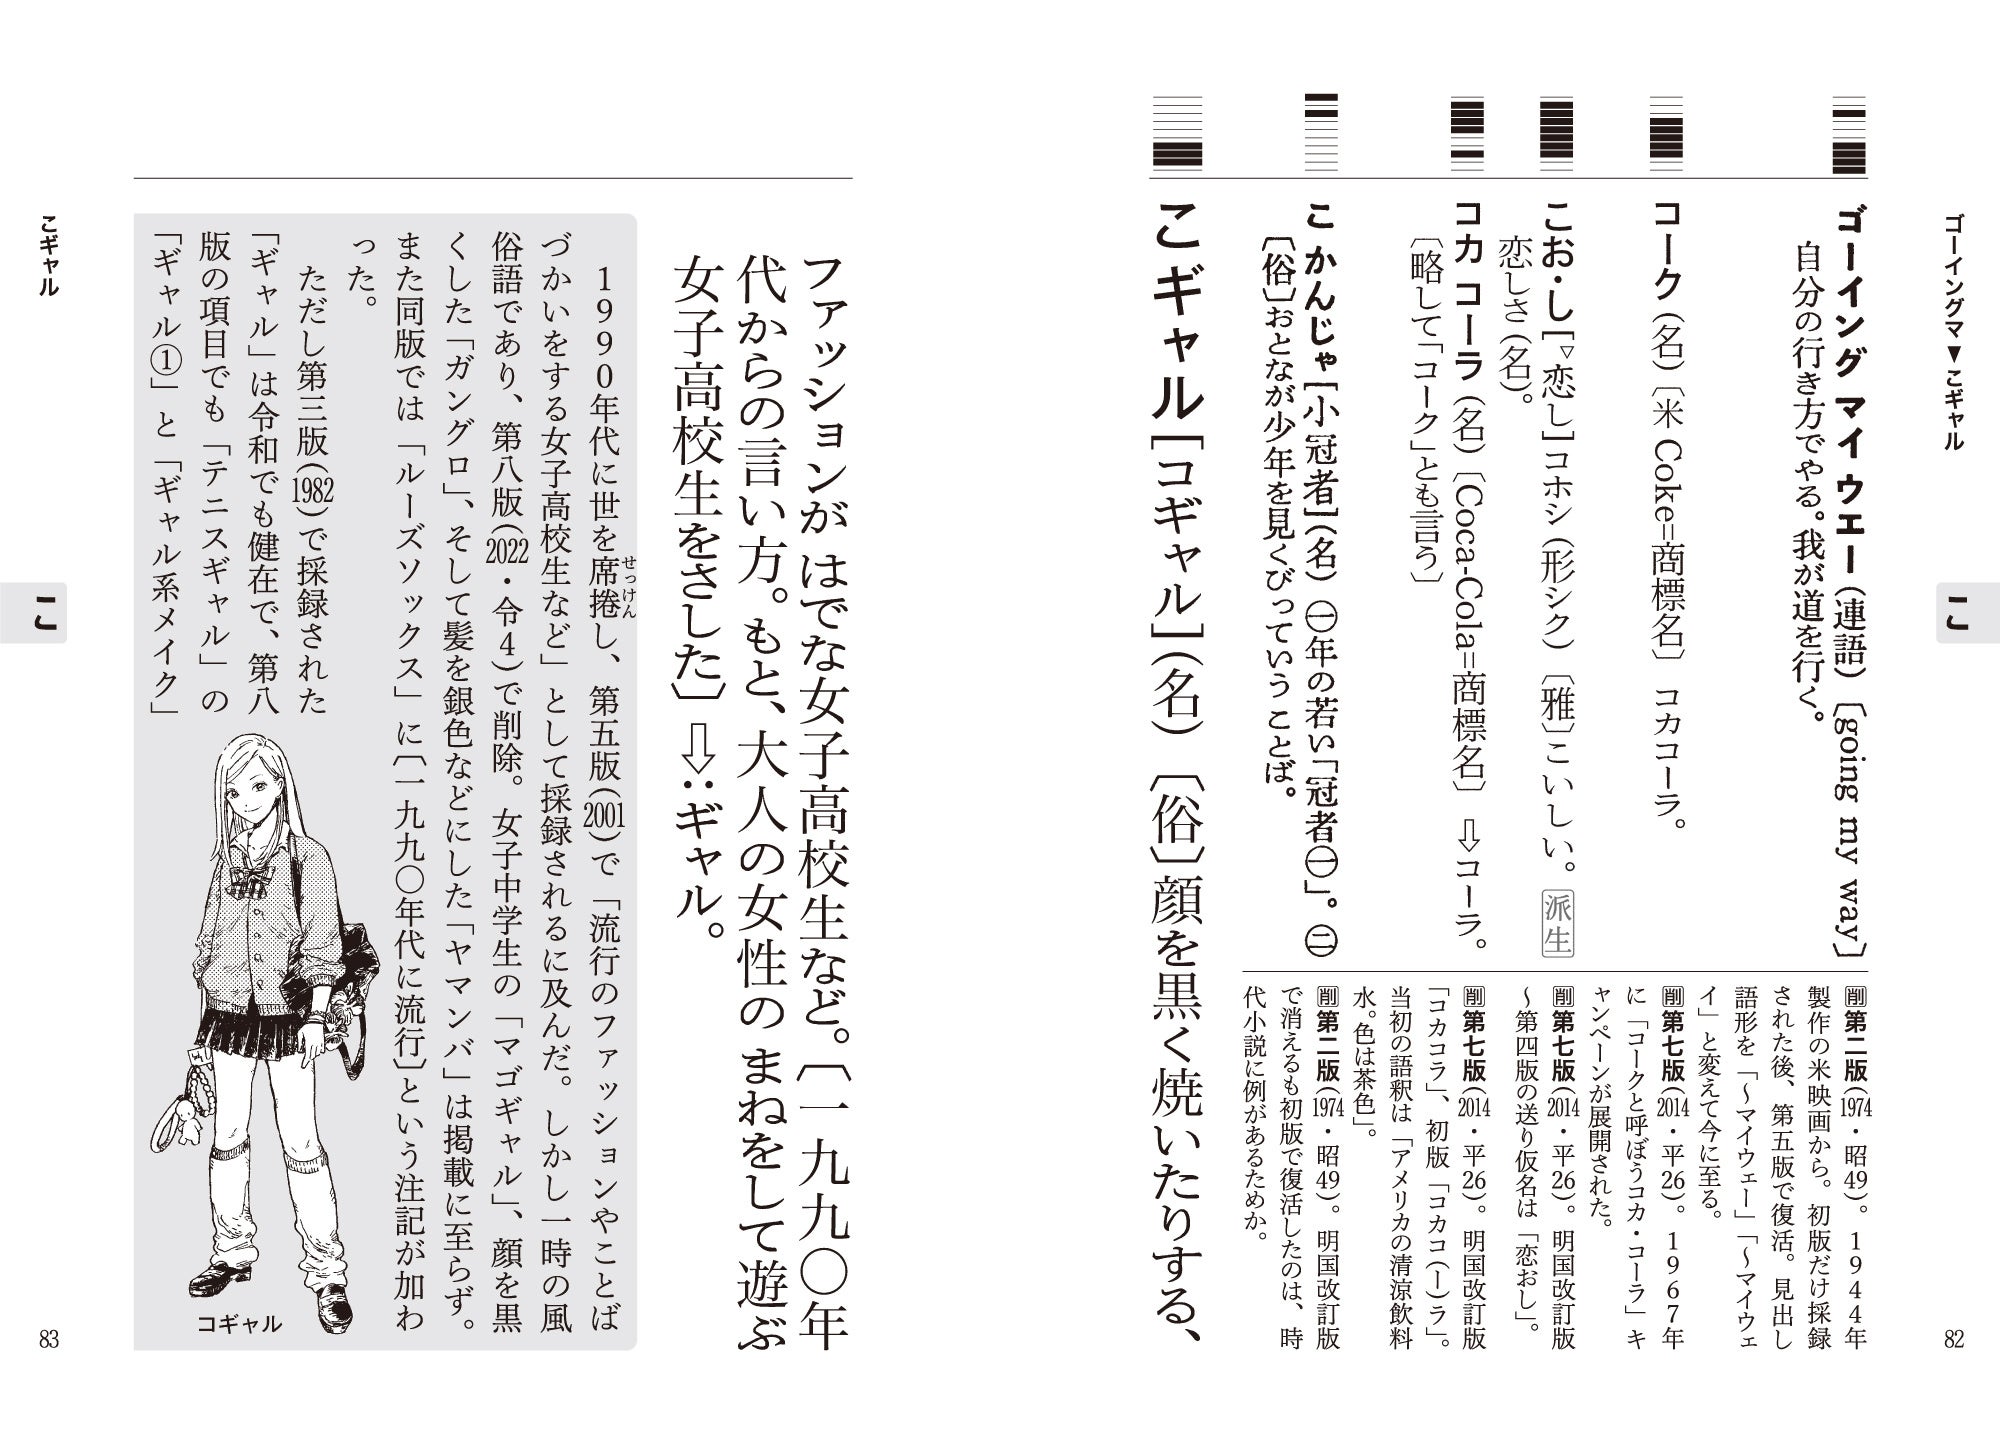 ゴーイングマ▼こギャル
こ
82
ゴーイング マイ ウエー(連語)〔going my way〕
自分の行き方でやる。我が道を行く。
コーク(名)〔米 Coke=商標名〕 コカコーラ。
こお・し[▽恋し]コホシ(形シク)〔雅〕こいしい。派生
恋しさ(名)。
コカ コーラ(名)〔Coca-Cola=商標名〕⇨コーラ。
〔略して「コーク」とも言う〕
こ かんじゃ[小冠者](名)㊀年の若い「冠者㊀」。㊁
〔俗〕おとなが少年を見くびっていう ことば。
こ ギャル[コギャル](名)〔俗〕顔を黒く焼いたりする、
削第二版(1974・昭49)。1944年
製作の米映画から。初版だけ採録
された後、第五版で復活。見出し
語形を「～マイウェー」「～マイウェ
イ」と変えて今に至る。
削第七版(2014・平26)。1967年
に「コークと呼ぼうコカ・コーラ」キ
ャンペーンが展開された。
削第七版(2014・平26)。明国改訂版
～第四版の送り仮名は「恋おし」。
削第七版(2014・平26)。明国改訂版
「コカコラ」、初版「コカコ(ー)ラ」。
当初の語釈は「アメリカの清涼飲料
水。色は茶色」。
削第二版(1974・昭49)。明国改訂版
で消えるも初版で復活したのは、時
代小説に例があるためか。
ファッションが はでな女子高校生など。〔一九九〇年
代からの言い方。もと、大人の女性の まねをして遊ぶ
女子高校生をさした〕⇨:ギャル。
1990年代に世を席捲し、第五版(2001)で「流行のファッションやことば
せっけん
づかいをする女子高校生など」として採録されるに及んだ。しかし一時の風
俗語であり、第八版(2022・令4)で削除。女子中学生の「マゴギャル」、顔を黒
くした「ガングロ」、そして髪を銀色などにした「ヤマンバ」は掲載に至らず。
また同版では「ルーズソックス」に〔一九九〇年代に流行〕という注記が加わ
った。
ただし第三版(1982)で採録された
「ギャル」は令和でも健在で、第八
版の項目でも「テニスギャル」の
「ギャル①」と「ギャル系メイク」
コギャル
こギャル
こ
83